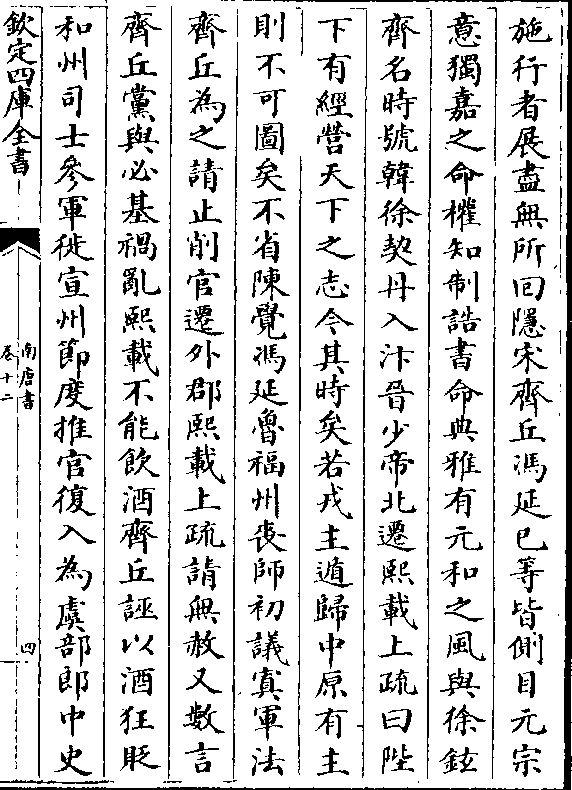 施行者展盡無所回隱宋齊丘馮延巳等皆側目元宗
意獨嘉之命權知制誥書命典雅有元和之風與徐鉉
齊名時號韓徐契丹入汴晉少帝北遷熙載上疏曰陛
下有經營天下之志今其時矣若戎主遁歸中原有主
則不可圖矣不省陳覺馮延魯福州喪師初議寘軍法
齊丘為之請止削官遷外郡熙載上疏請無赦又數言
齊丘黨與必基禍亂熙載不能飲酒齊丘誣以酒狂貶
和州司士參軍徙宣州節度推官復入為虞部郎中史
欽定四庫全書
南唐書
卷十二
四